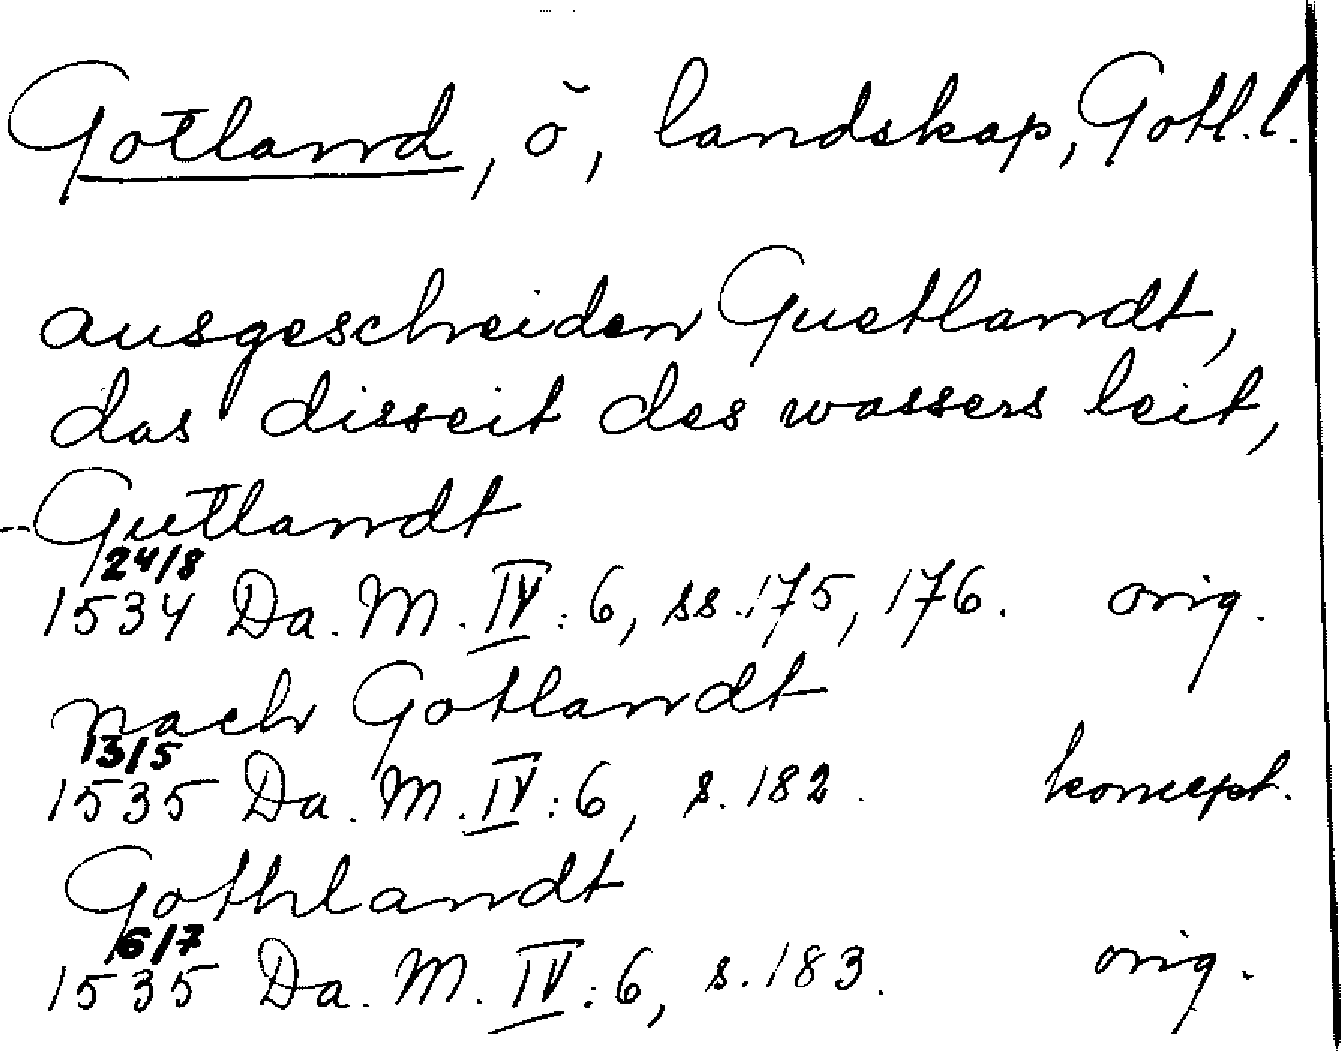 Gotland, ö, landskap, Gotl. l.
ausgescheiden Guetlandt,
das disseit des wassers leit,
Gutlandt
24/8
1534 Da. M. IV: 6, ss. 175, 176. orig.
nach Gotlandt
13/5
1535 Da. M. IV: 6, s. 182. koncept.
Gothlandt
16/7
1535 Da. M. IV: 6, s. 183. orig.